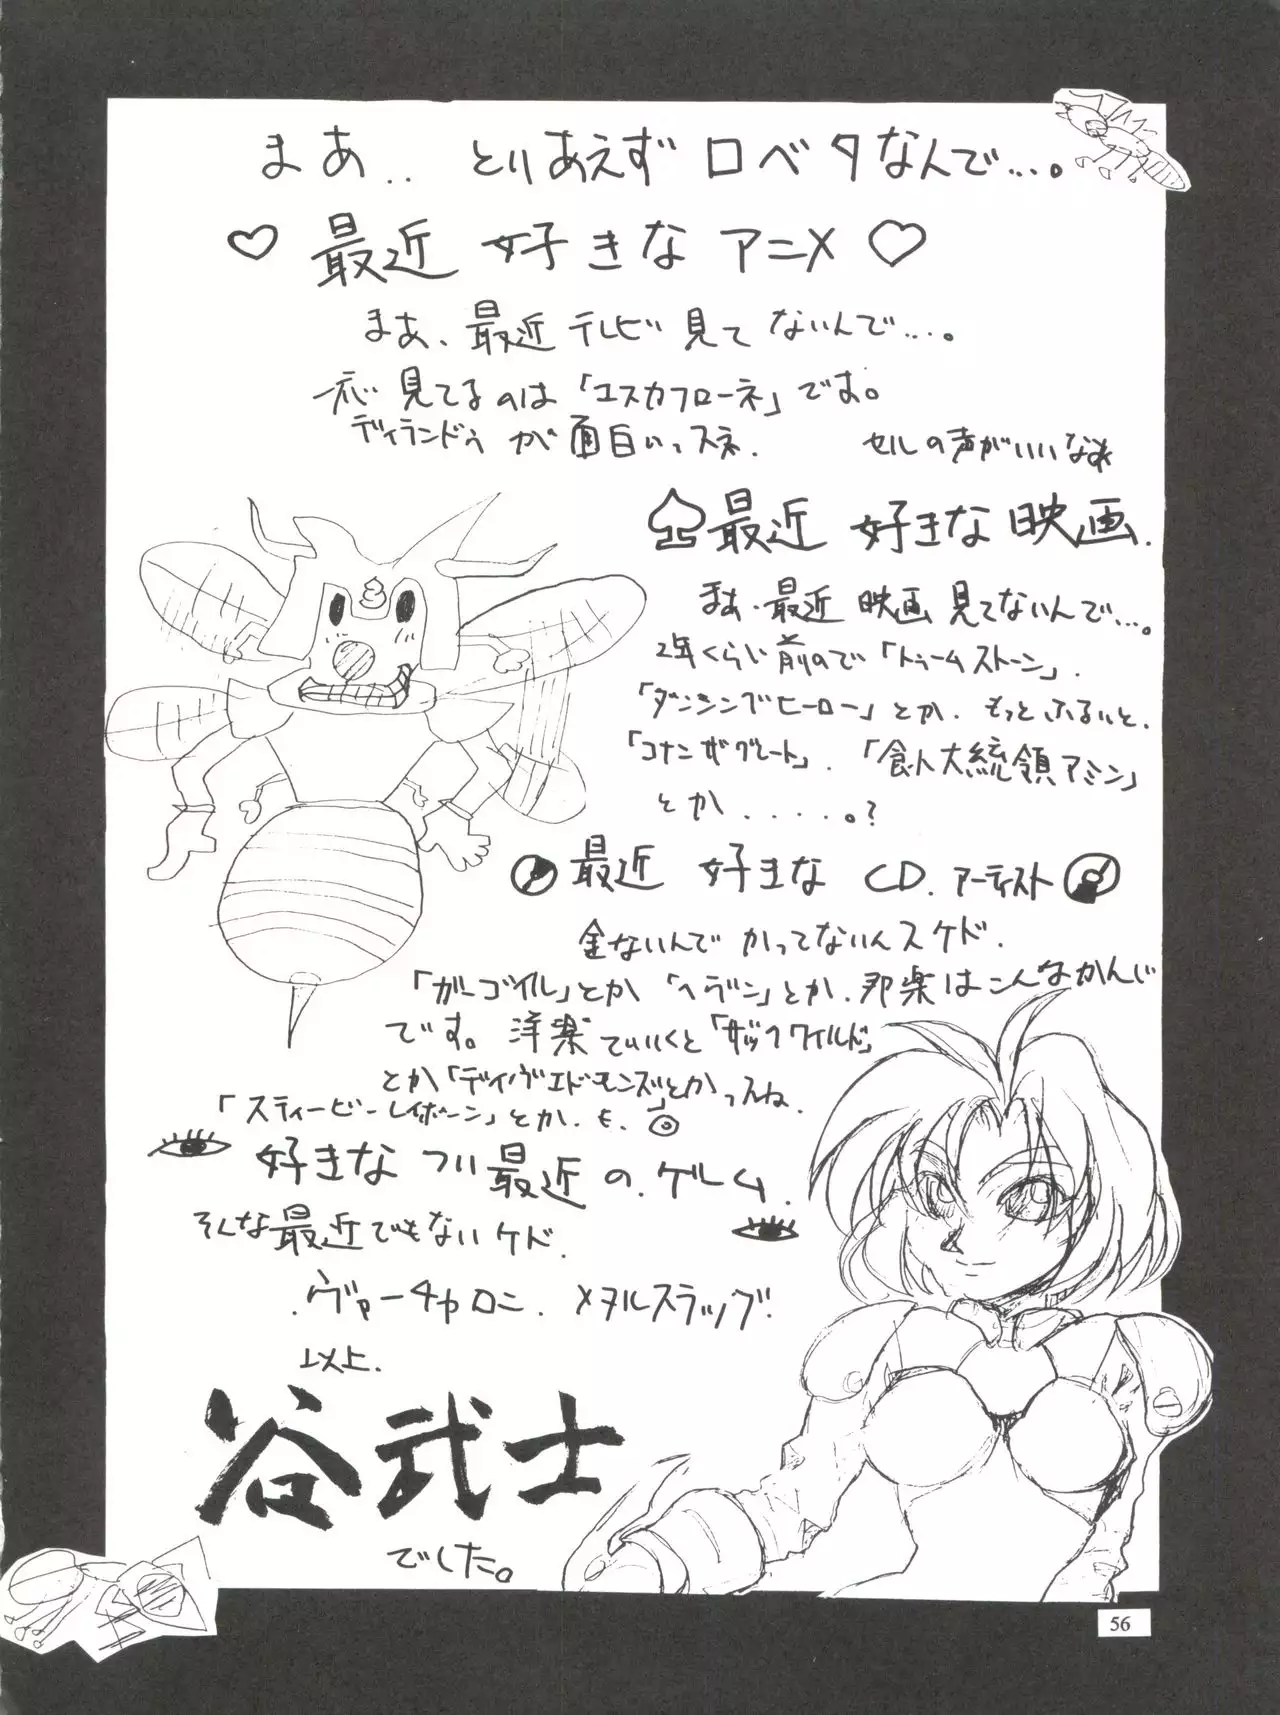 まあ.. とりあえず ロベタなんで...。
♡ 最近 好きな アニメ ♡
まあ、最近 テレビ 見て ないんで...。
一応 見てるのは「エスカフローネ」です。
ディランドゥ が 面白いっスネ.
セルの声がいいなぁ
♤最近 好きな 映画.
まあ.最近 映画 見てないんで...。
2年くらい前ので「トゥームストーン」.
「ダンシングヒーロー」とか. もっとふるいと.
「コナンザグレート」.「食人大統領アミン」
とか .....。?
最近 好きな CD.アーティスト
金ないんで かってないんスケド.
「ガーゴイル」とか「ヘヴン」とか.邦楽はこんなかんじ
です。洋楽でいくと「ザックワイルド」
とか「デイヴエドモンズ」とかっスね.
「スティービーレイボーン」とか.も.◎
好きな つい最近 の.ゲーム.
そんな最近でもないケド.
.ヴァーチャロン. メタルスラッグ.
以上.
谷武士
でした。
56